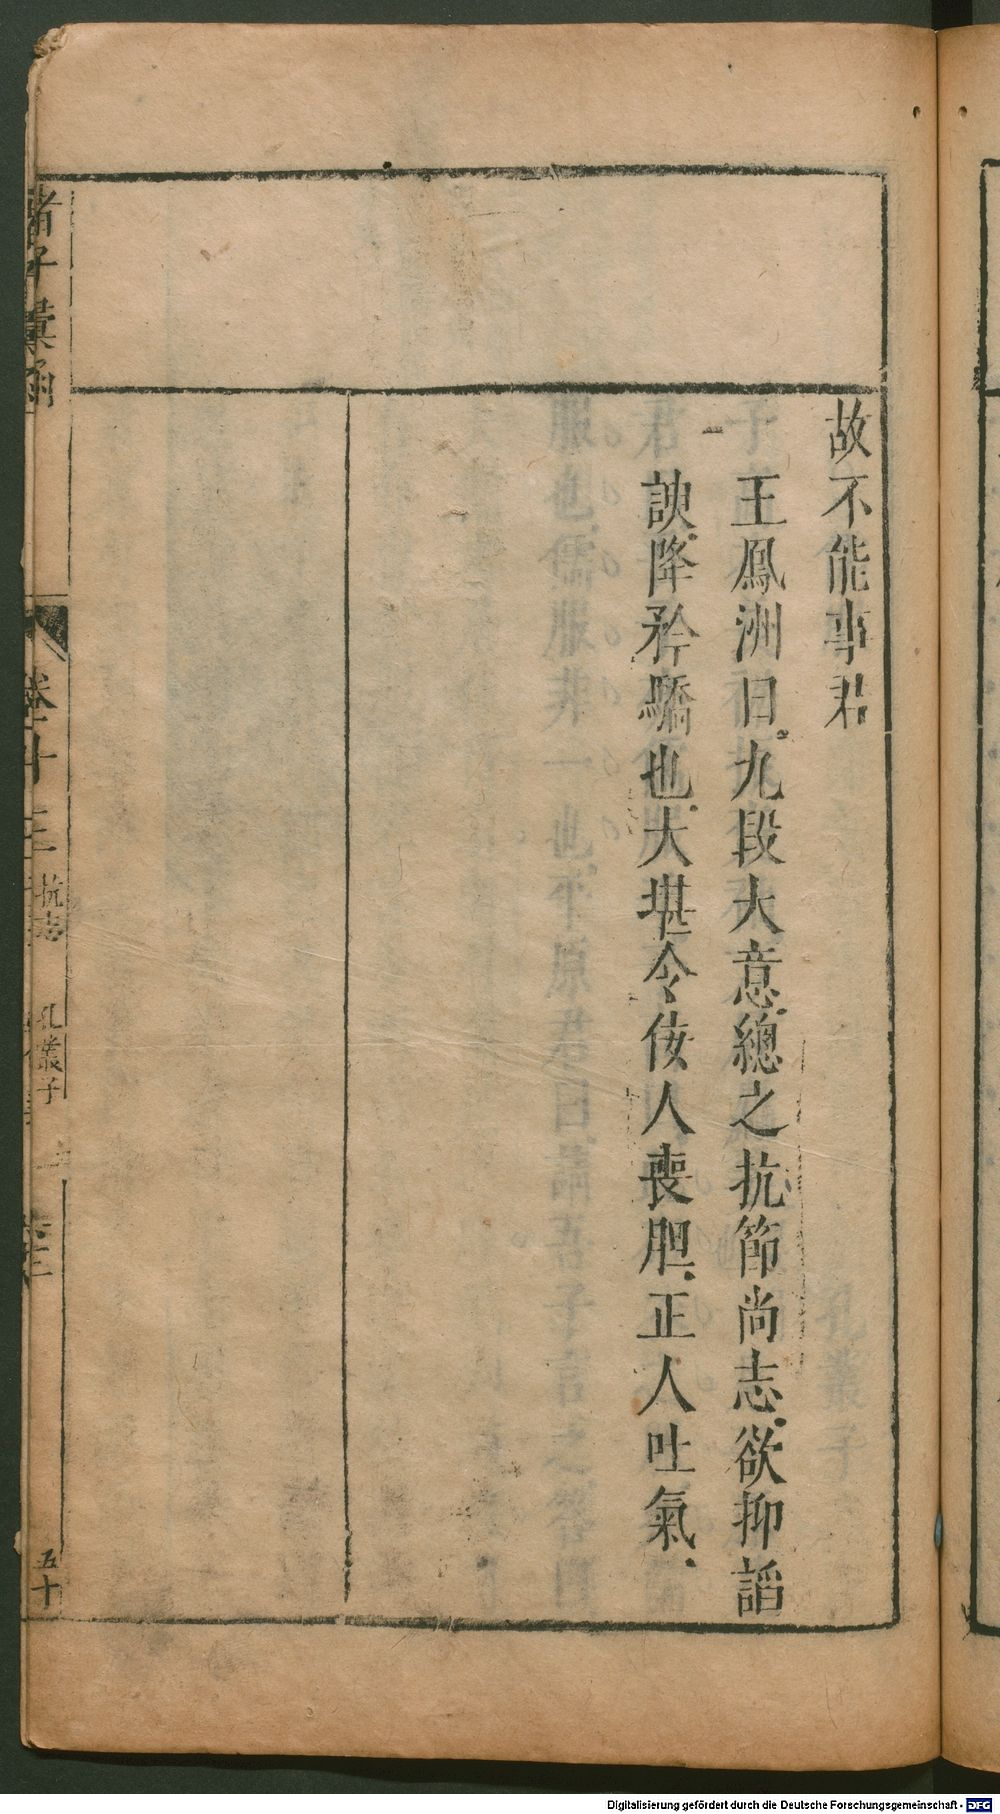 故不能事君
王鳳洲曰九段大意總之抗節尚志欲抑諂
諛降矜驕也大堪令佞人喪胆正人吐氣
諸子彙函
卷十三 抗志 孔叢子
五十
Digitalisierung gefördert durch die Deutsche Forschungsgemeinschaft - DFG